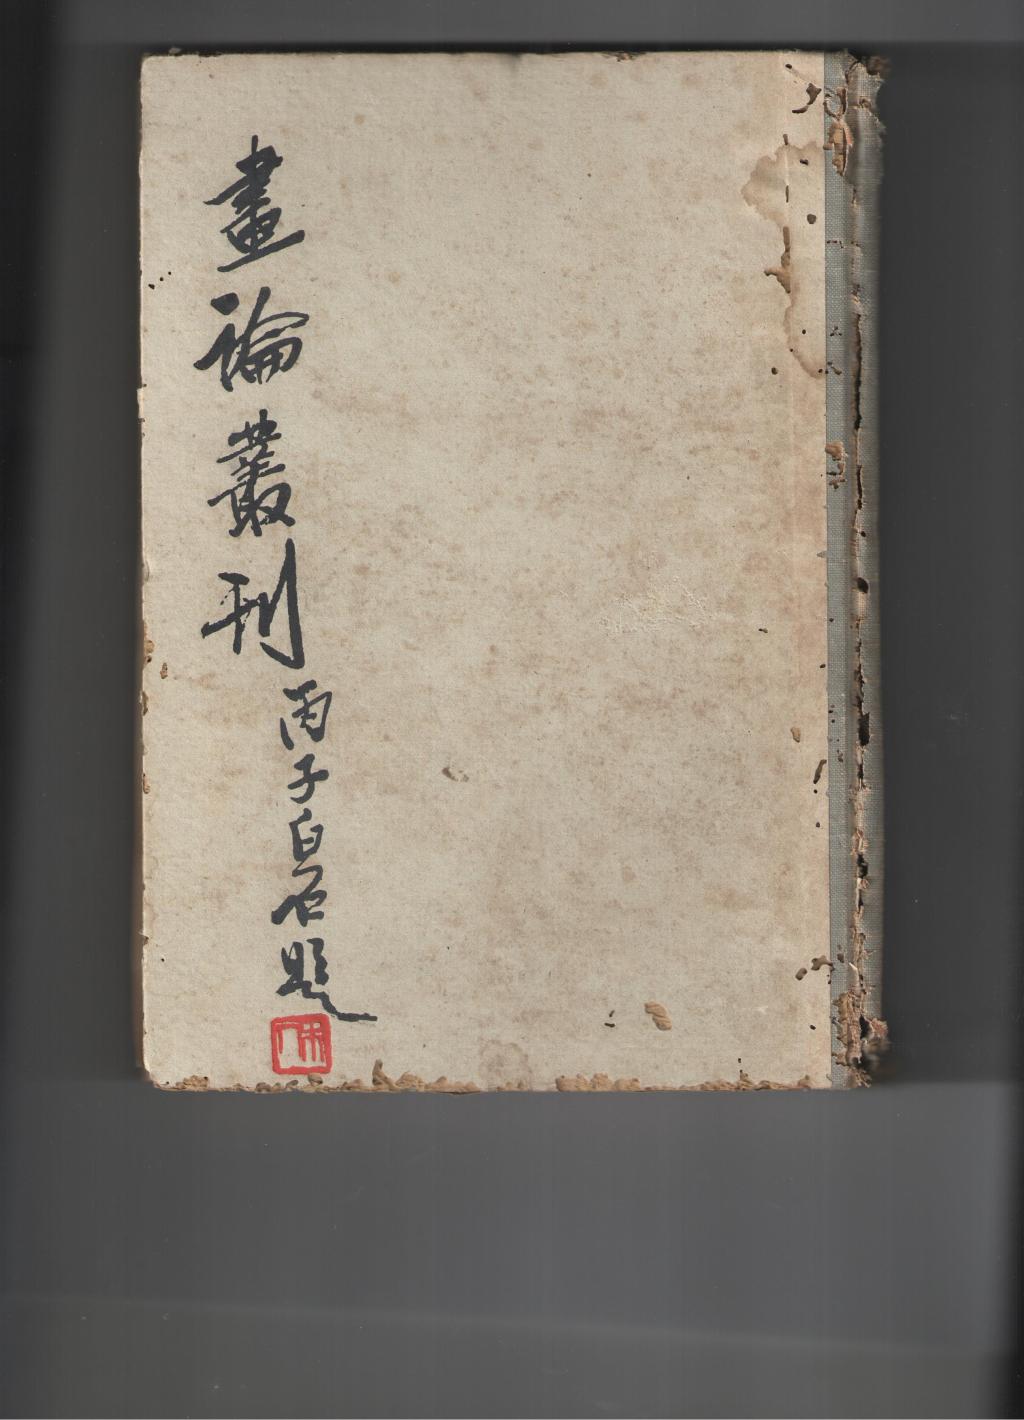 畫論叢刊
丙子白石題
木人